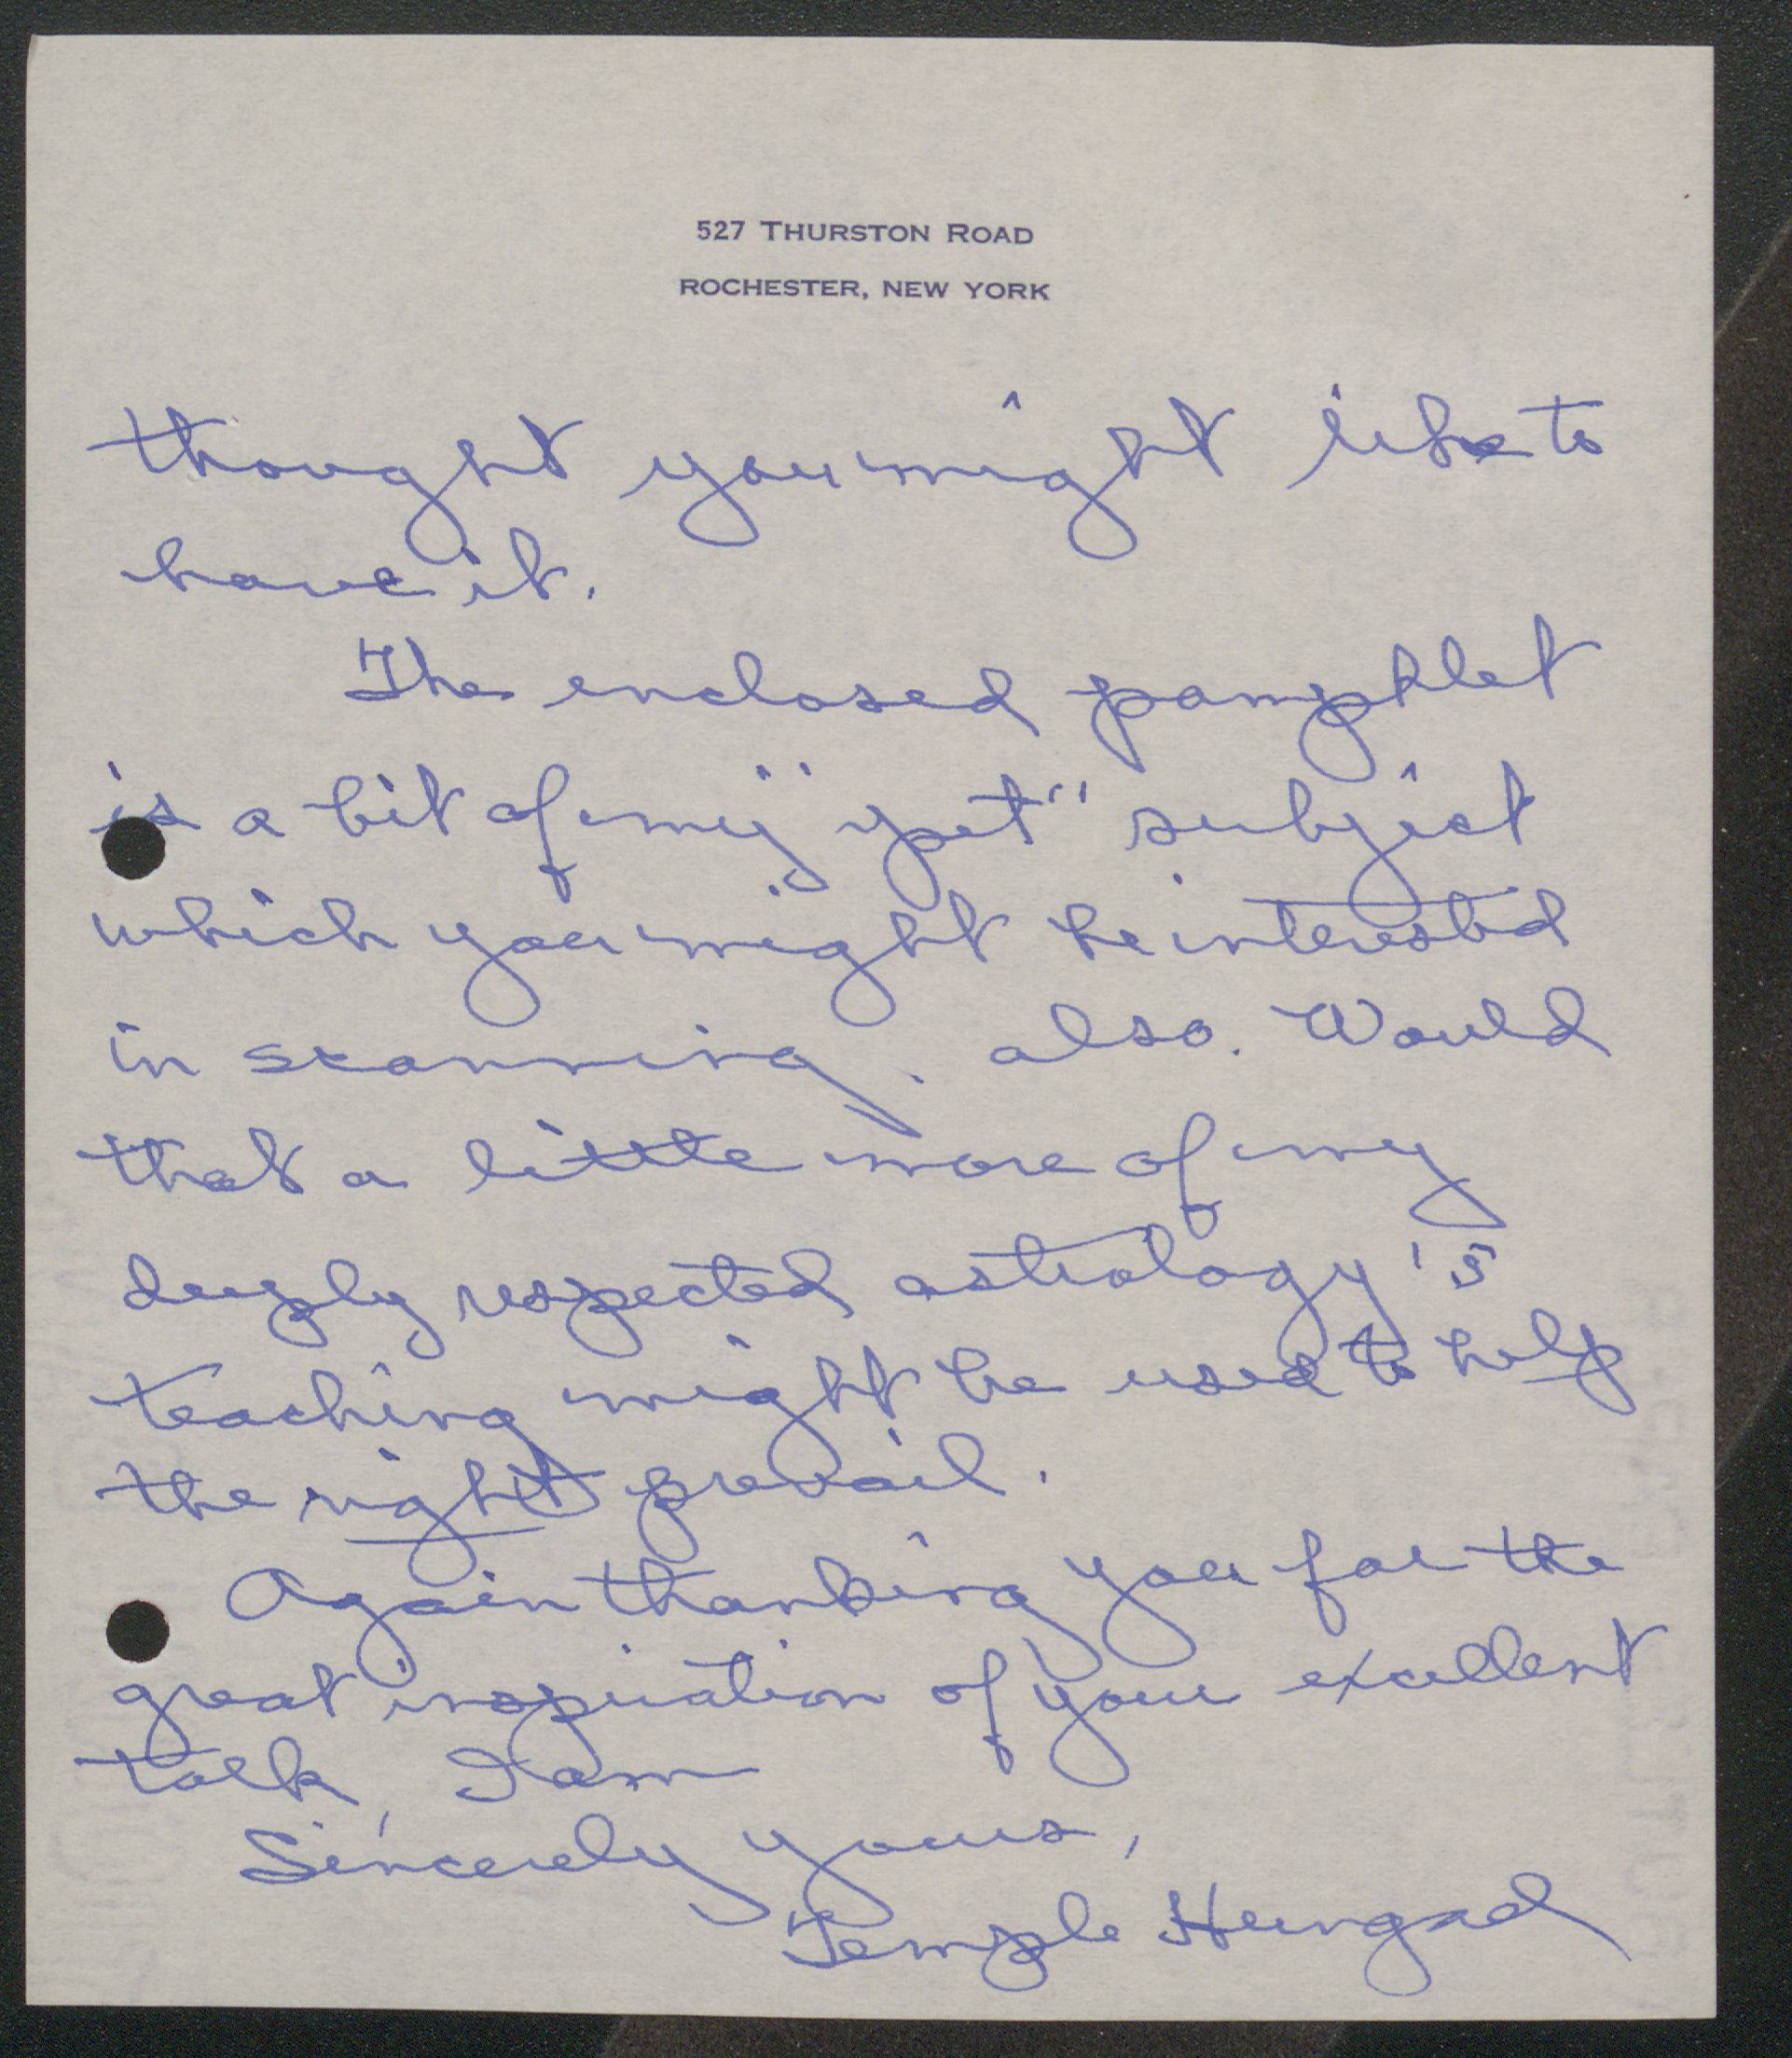 527 THURSTON ROAD
ROCHESTER, NEW YORK
thought you might like to
have it.
The enclosed pamphlet
is a bit of my "pet" subject
which you might be interested
in scanning. also. Would
that a little more of my
deeply respected astrology's
teaching might be used to help
the right prevail.
Again thanking you for the
great inspiration of your excellent
talk, I am
Sincerely yours,
Temple Hungad